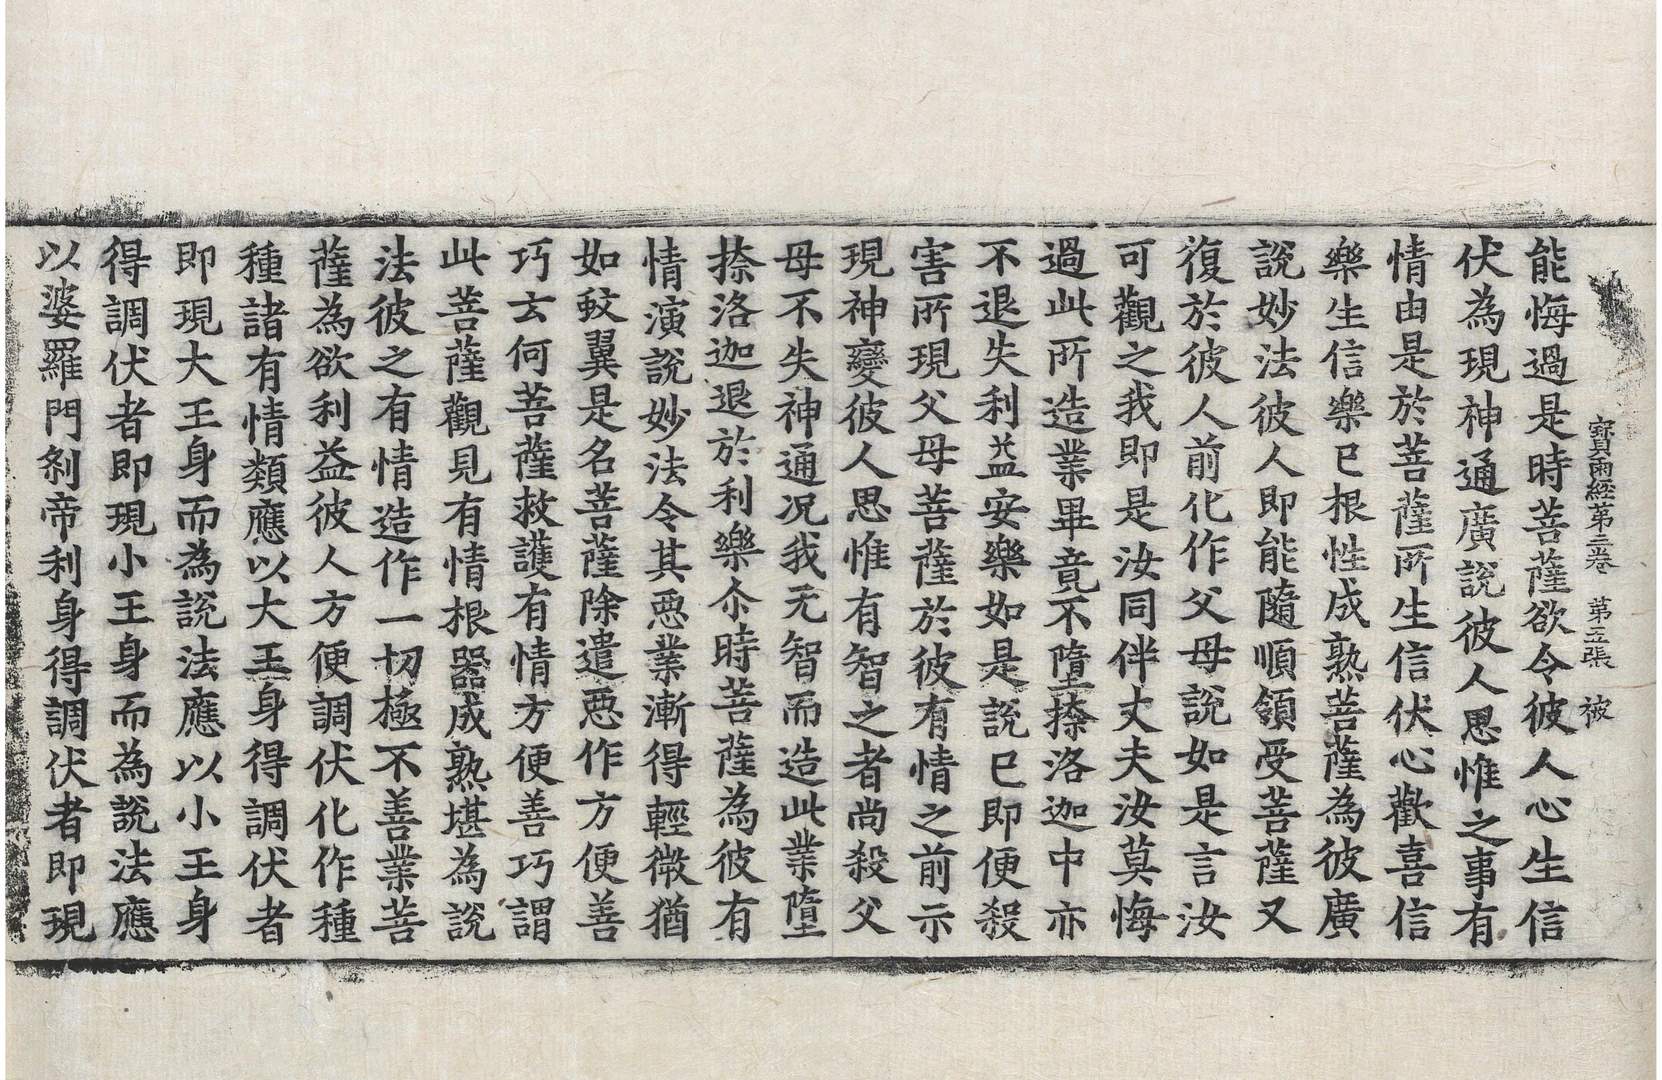 寶雨經第二卷 第五張 被
能悔過是時菩薩欲令彼人心生信
伏為現神通廣說彼人思惟之事有
情由是於菩薩所生信伏心歡喜信
樂生信樂已根性成熟菩薩為彼廣
說妙法彼人即能隨順領受菩薩又
復於彼人前化作父母說如是言汝
可觀之我即是汝同伴丈夫汝莫悔
過此所造業畢竟不墮捺洛迦中亦
不退失利益安樂如是說已即便殺
害所現父母菩薩於彼有情之前示
現神變彼人思惟有智之者尚殺父
母不失神通况我无智而造此業墮
捺洛迦退於利樂尒時菩薩為彼有
情演說妙法令其惡業漸得輕微猶
如蚊翼是名菩薩除遣惡作方便善
巧云何菩薩救護有情方便善巧謂
此菩薩觀見有情根器成熟堪為說
法彼之有情造作一切極不善業菩
薩為欲利益彼人方便調伏化作種
種諸有情類應以大王身得調伏者
即現大王身而為說法應以小王身
得調伏者即現小王身而為說法應
以婆羅門刹帝利身得調伏者即現